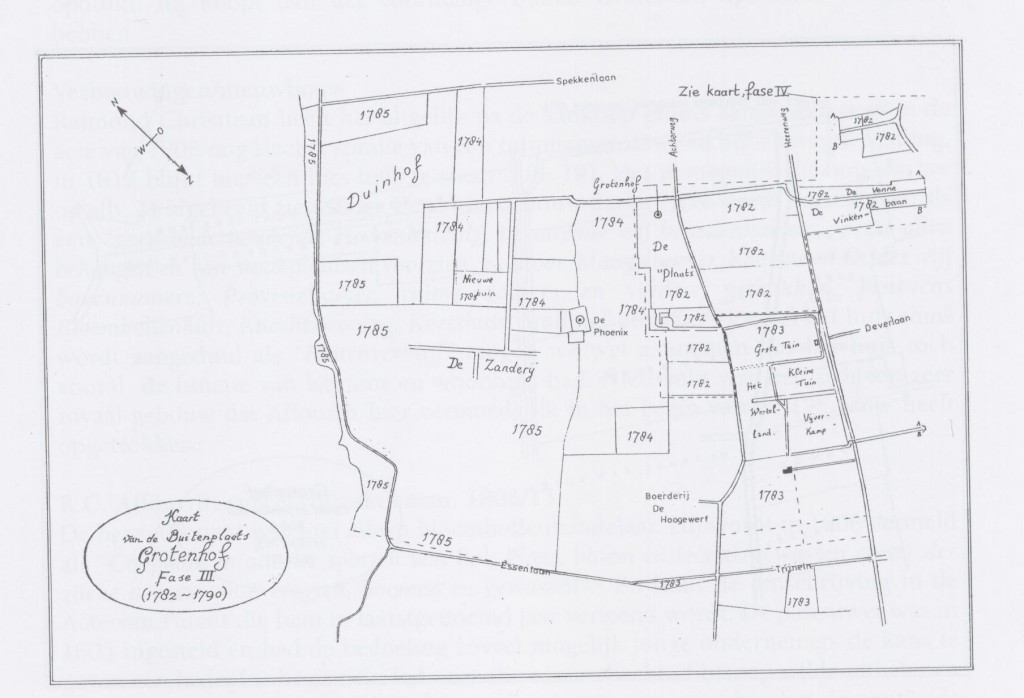 Spekkenlaan
Zie kaart, fase IV
N
O
W
Z
1785
1784
1785
Achterweg
Heereweg
A
1782
B
1782
Duinhof
Grotenhof
1782
De Venne
A
De
1782
baan
Vinken-
B
1784
1784
De
1782
"Plaats
1782
1785
Nieuwe
tuin
1784
1784
1782
1782
De
Phoenix
1782
1783
Grote Tuin
Deverlaan
1785
1785
De
Zandery
1782
1782
Kleine
Tuin
Het
Wortel-
land.
Vijver-
Kamp
1785
1784
A
B
1785
Boerderij
De
Hoogewerf
1783
1785
Essenlaan
1783
Trijneln
1783
Kaart
van de Buitenplaats
Grotenhof
Fase III
(1782 ~ 1790)